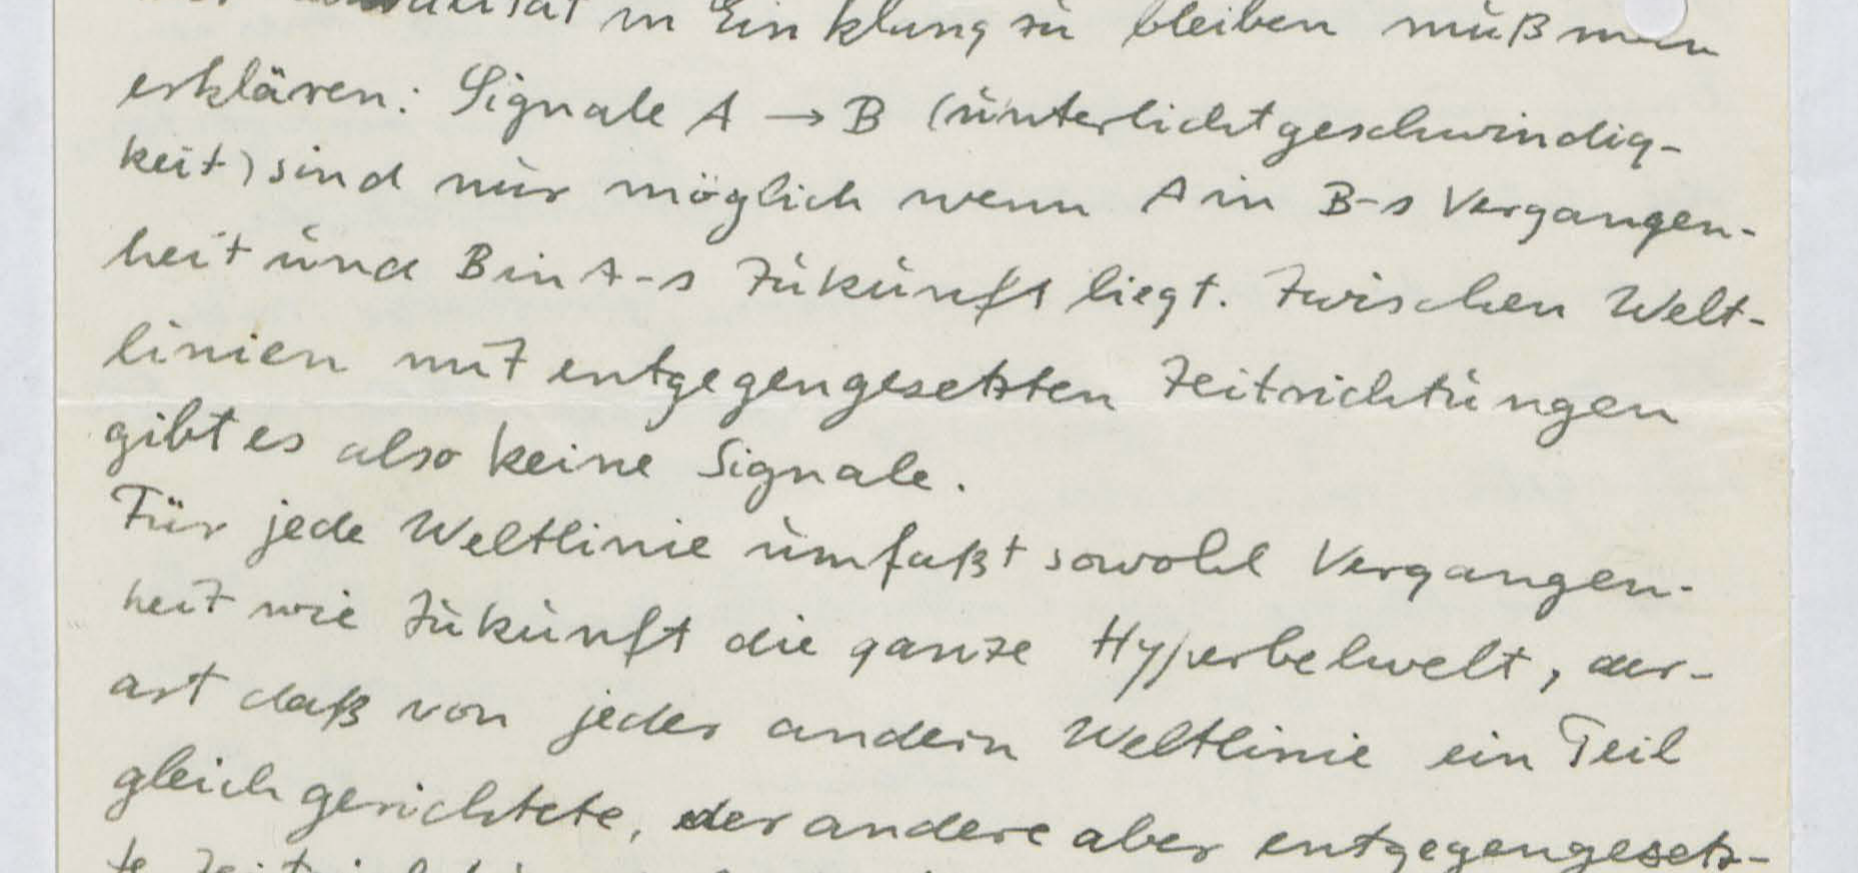 in Einklang zu bleiben muß man
erklären: Signale A → B (unterlichtgeschwindig-
keit) sind nur möglich wenn A in B-s Vergangen-
heit und B in A-s Zukunft liegt. Zwischen Welt-
linien mit entgegengesetzten Zeitrichtungen
gibt es also keine Signale.
Für jede Weltlinie umfaßt sowohl Vergangen-
heit wie Zukunft die ganze Hyperbelwelt, der-
art daß von jeder andern Weltlinie ein Teil
gleich gerichtete, der andere aber entgegengesetz-